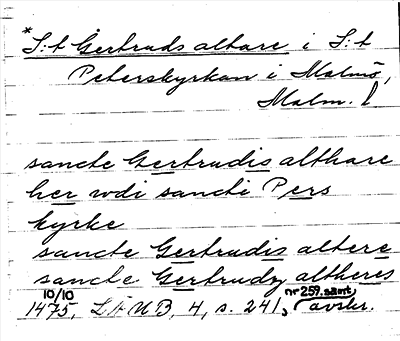 *S:t Gertruds altare i S:t
Peterskyrkan i Malmö,
Malm.
sancte Gertrudis althare
her vdi sancti Pers
kyrke
sancte Gertrudis altere
sancte Gertrudz altheres
10/10 nr 259. samt
1475, LÄUB, 4, s. 241, avskr.